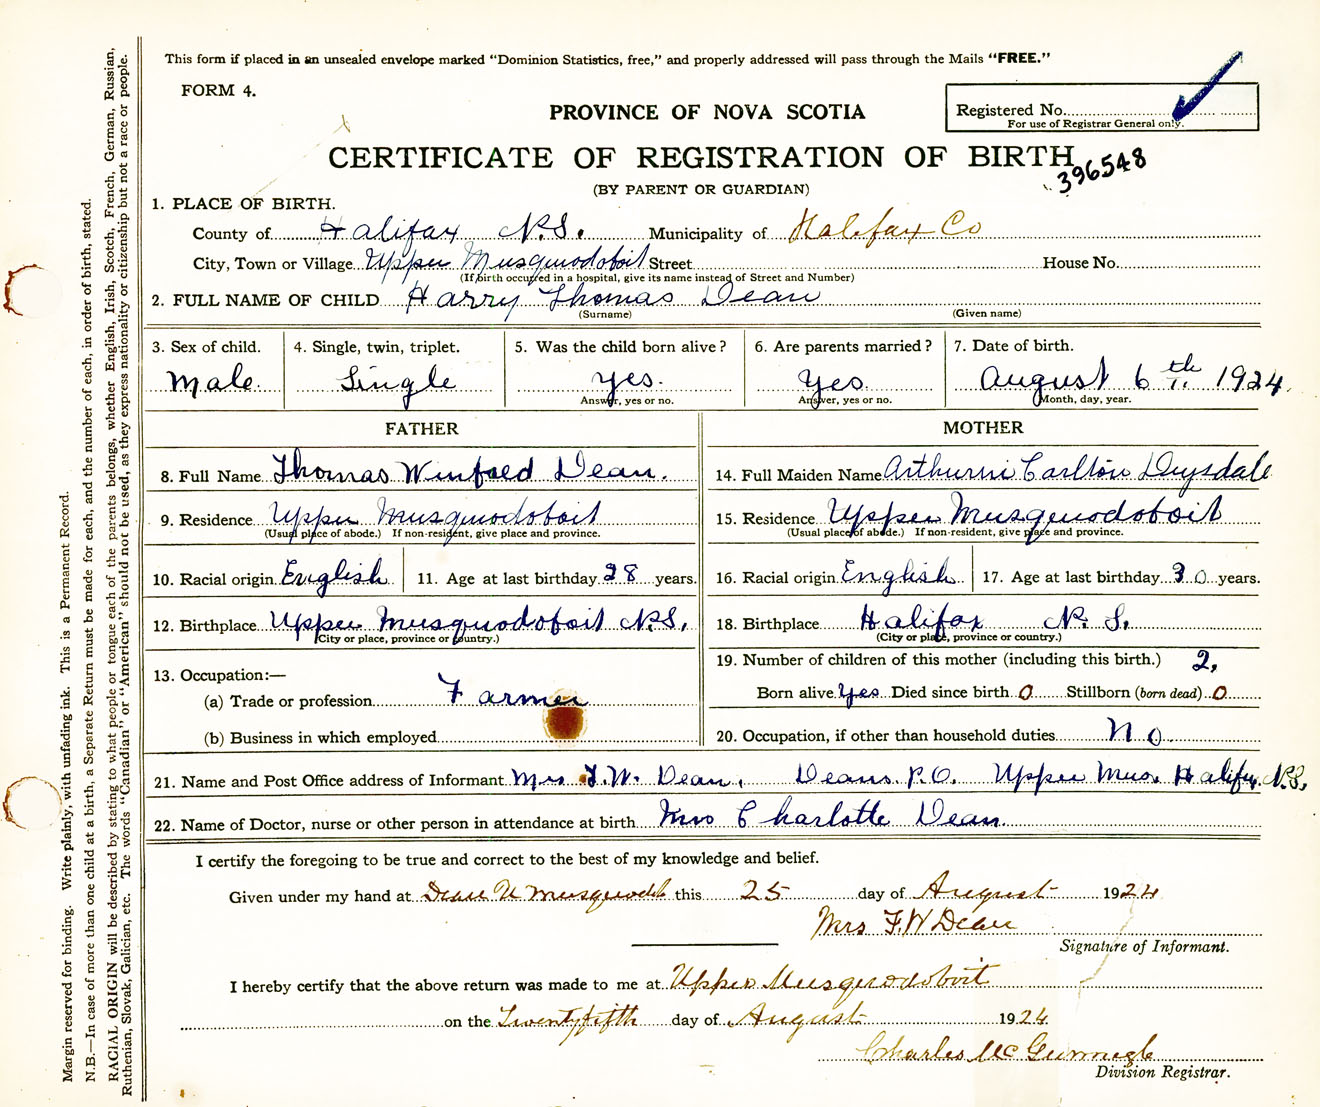 This form if placed in an unsealed envelope marked "Dominion Statistics, free," and properly addressed will pass through the Mails "FREE."
FORM 4.
PROVINCE OF NOVA SCOTIA
Registered No.
For use of Registrar General only.
CERTIFICATE OF REGISTRATION OF BIRTH
396548
(BY PARENT OR GUARDIAN)
1. PLACE OF BIRTH.
County of Halifax N.S. Municipality of Halifax Co
City, Town or Village Upper Musquodoboit Street House No.
(If birth occurred in a hospital, give its name instead of Street and Number)
2. FULL NAME OF CHILD Harry Thomas Dean
(Surname) (Given name)
3. Sex of child. 4. Single, twin, triplet. 5. Was the child born alive? 6. Are parents married? 7. Date of birth.
Male. Single yes. Yes. August 6th. 1924.
Answer, yes or no. Answer, yes or no. Month, day, year.
FATHER MOTHER
8. Full Name Thomas Winfred Dean. 14. Full Maiden Name Carlton Drysdale
9. Residence Upper Musquodoboit 15. Residence Upper Musquodoboit
(Usual place of abode.) If non-resident, give place and province. (Usual place of abode.) If non-resident, give place and province.
10. Racial origin English 11. Age at last birthday 28 years. 16. Racial origin English 17. Age at last birthday 30 years.
12. Birthplace Upper Musquodoboit N.S. 18. Birthplace Halifax N.S.
(City or place, province or country.) (City or place, province or country.)
19. Number of children of this mother (including this birth.) 2,
13. Occupation:—
(a) Trade or profession Farmer Born alive Yes Died since birth 0 Stillborn (born dead) 0
(b) Business in which employed 20. Occupation, if other than household duties No.
21. Name and Post Office address of Informant Mrs T.W. Dean, Deans P.O. Upper Mus. Halifx. N.S.
22. Name of Doctor, nurse or other person in attendance at birth Mrs Charlotte Dean.
I certify the foregoing to be true and correct to the best of my knowledge and belief.
Given under my hand at Dean U Musquodbt this 25 day of August 1924
Mrs T.W Dean
Signature of Informant.
I hereby certify that the above return was made to me at Upper Musquodoboit
on the Twentyfifth day of August 1924
Charles Mc
Division Registrar.
Margin reserved for binding. Write plainly, with unfading ink. This is a Permanent Record.
N.B.—In case of more than one child at a birth, a Separate Return must be made for each, and the number of each, in order of birth, stated.
RACIAL ORIGIN will be described by stating to what people or tongue each of the parents belongs, whether English, Irish, Scotch, French, German, Russian,
Ruthenian, Slovak, Galician, etc. The words "Canadian" or "American" should not be used, as they express nationality or citizenship but not a race or people.